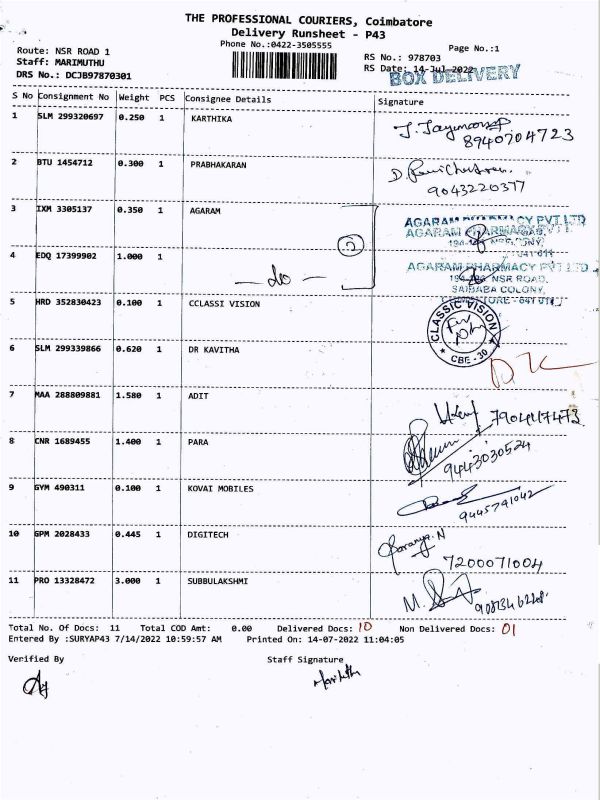 THE PROFESSIONAL COURIERS, Coimbatore
Delivery Runsheet - P43
Phone No.:0422-3505555
Page No.:1
Route: NSR ROAD 1
Staff: MARIMUTHU
DRS No.: DCJB97870301
RS No.: 978703
RS Date: 14-Jul-2022
BOX DELIVERY
S No Consignment No Weight PCS Consignee Details Signature
1 SLM 299320697 0.250 1 KARTHIKA
8940704723
2 BTU 1454712 0.300 1 PRABHAKARAN
9043220377
3 IXM 3305137 0.350 1 AGARAM
AGARAM PHARMACY PVT LTD
4 EDQ 17399902 1.000 1 - do -
2
AGARAM PHARMACY PVT LTD
NSR ROAD,
SAIBABA COLONY,
5 HRD 352830423 0.100 1 CCLASSI VISION
CLASSIC VISION
CBE - 30
6 SLM 299339866 0.620 1 DR KAVITHA
DK
7 MAA 288809881 1.580 1 ADIT
8 CNR 1689455 1.400 1 PARA
9443030524
9 GYM 490311 0.100 1 KOVAI MOBILES
9445791042
10 GPM 2028433 0.445 1 DIGITECH
Saranya. N
7200071004
11 PRO 13328472 3.000 1 SUBBULAKSHMI
Total No. Of Docs: 11 Total COD Amt: 0.00 Delivered Docs: 10 Non Delivered Docs: 01
Entered By :SURYAP43 7/14/2022 10:59:57 AM Printed On: 14-07-2022 11:04:05
Verified By Staff Signature